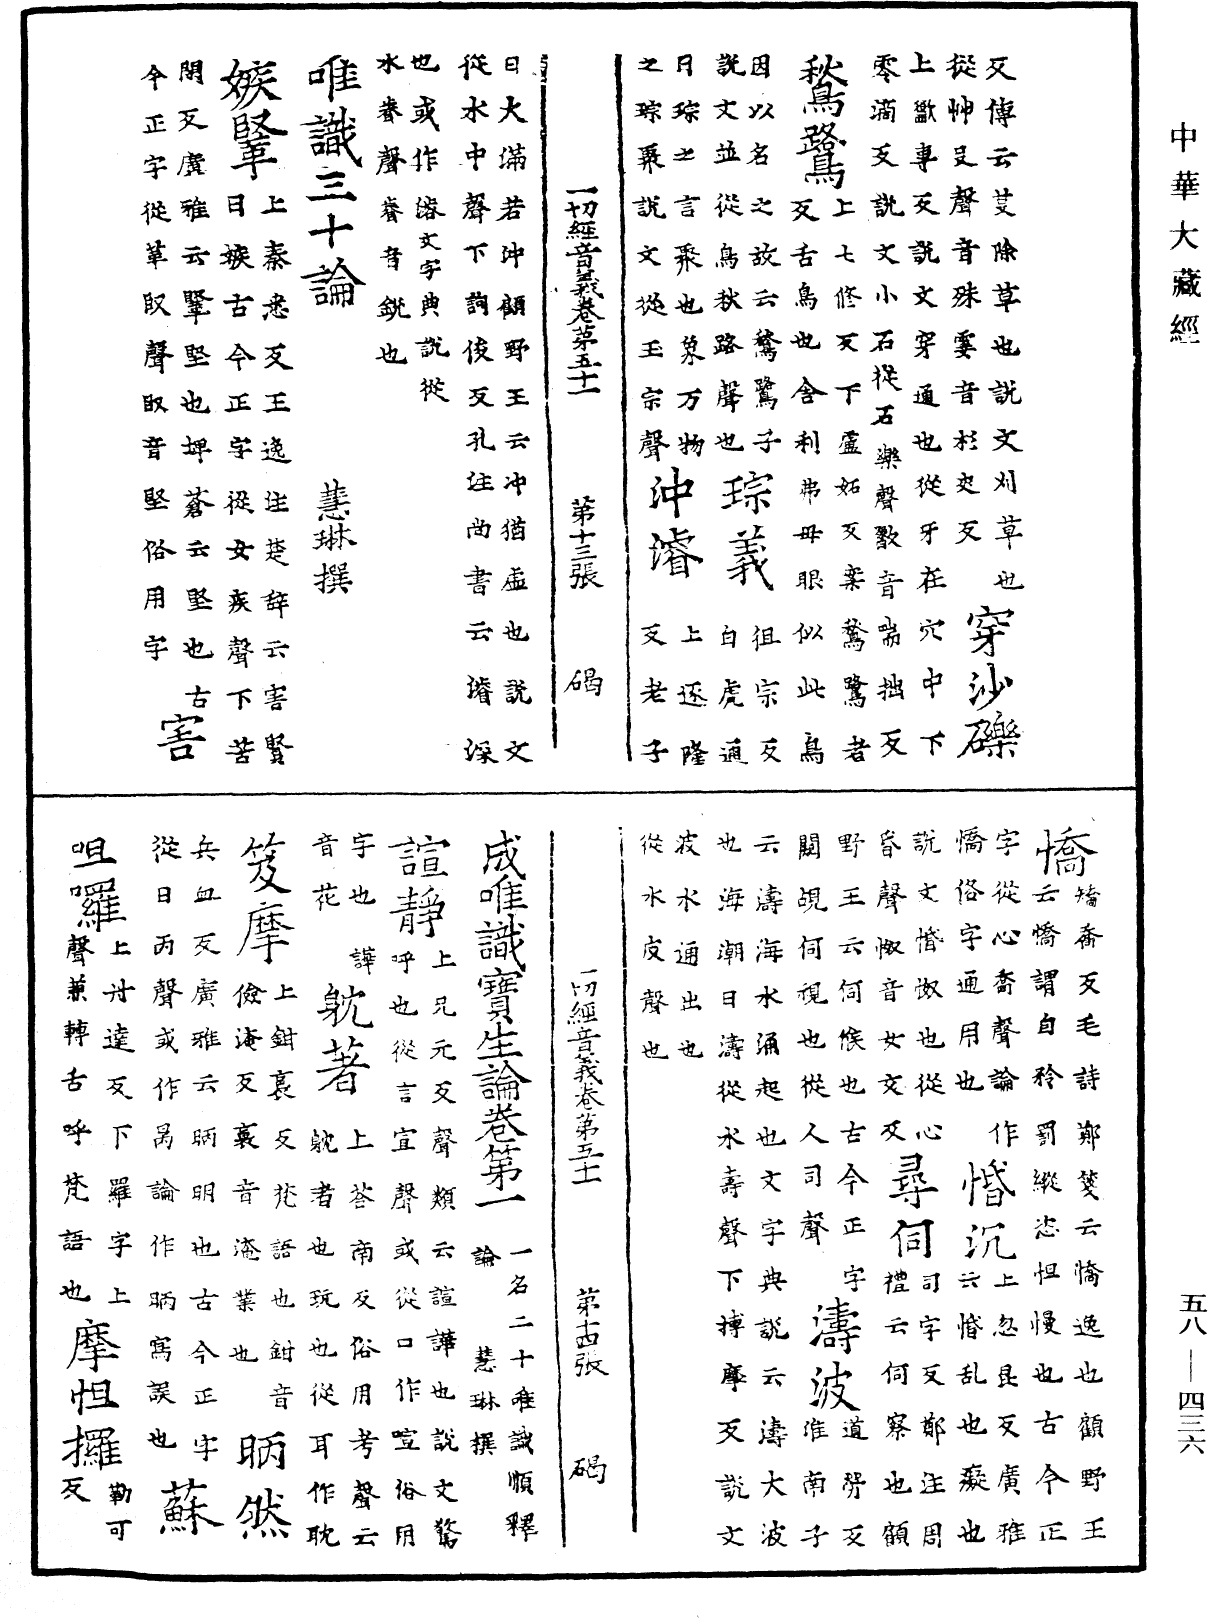 中華大藏經
反傳云芟除草也說文刈草也
從艸殳聲音殊㚇音杉史反 穿沙礫
上歠專反說文穿通也從牙在穴中下
零滴反說文小石從石樂聲歠音喘拙反
鶖鷺 上七修反下盧妬反案鶖鷺者
反舌鳥也舍利弗母眼似此鳥
因以名之故云鶖鷺子 琮義 徂宗反
說文並從鳥秋路聲也 白虎通
曰琮之言聚也象万物 沖濬 上逐隆
之琮聚說文從玉宗聲 反老子
一切經音義卷第五十一 第十三張 碣
曰大滿若沖顧野王云沖猶虛也說文
從水中聲下詢俊反孔注尚書云濬深
也或作㴥文字典說從
水睿聲睿音銳也
唯識三十論 慧琳撰
嫉鞏 上秦悉反王逸注楚辞云害賢
曰嫉古今正字從女疾聲下苦
閑反廣雅云鞏堅也埤蒼云堅也古
今正字從革臤聲臤音堅俗用字 害
憍 矯喬反毛詩鄭箋云憍逸也顧野王
云憍謂自矜罰縱恣怛慢也古今正
字從心喬聲論作 惛沉 上忽昆反廣雅
憍俗字通用也 云惛乱也癡也
說文惛怓也從心 尋伺 司字反鄭注周
昏聲怓音女交反 禮云伺察也顧
野王云伺候也古今正字 濤波 道勞反
闚覘伺視也從人司聲 淮南子
云濤海水涌起也文字典說云濤大波
也海潮日濤從水壽聲下摶摩反說文
波水通出也
從水皮聲也
一切經音義卷第五十一 第十四張 碣
成唯識寶生論卷第一 一名二十唯識順釋論 慧琳撰
諠靜 上兄元反聲類云諠譁也說文驚
呼也從言宣聲或從口作喧俗用
字也譁 躭著 上荅南反俗用考聲云
音花 躭者也玩也從耳作耽
笈摩 上鉗裛反梵語也鉗音
儉淹反裛音淹業也 昞然
兵皿反廣雅云昞明也古今正字
從日丙聲或作昺論作昞寫誤也 蘇
呾囉 上丹達反下羅字上
聲兼轉舌呼梵語也 摩怛攞 勒可反
五八—四三六